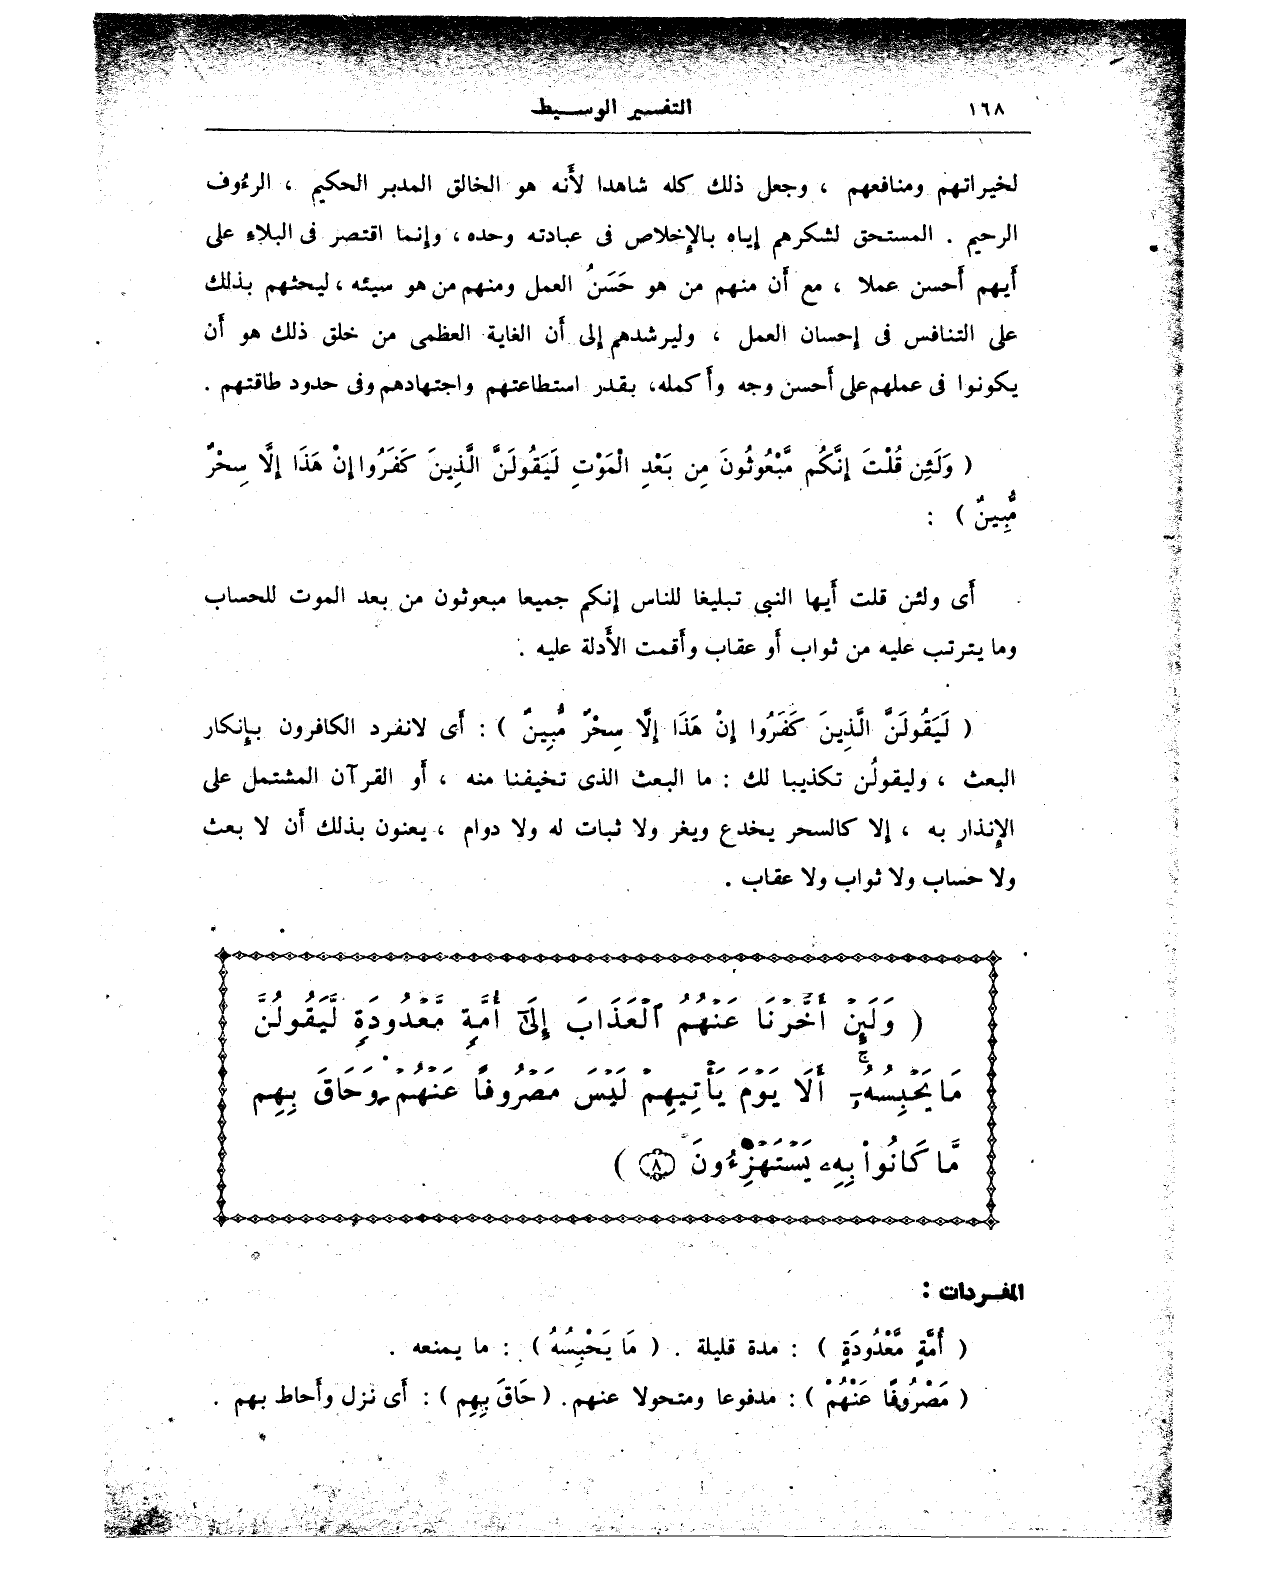 ١٦٨ التفسير الوسيط
لخيراتهم ومنافعهم ، وجعل ذلك كله شاهدا لأنه هو الخالق المدبر الحكيم ، الرءوف
الرحيم . المستحق لشكرهم إياه بالإخلاص فى عبادته وحده ، وإنما اقتصر فى البلاء على
أيهم أحسن عملا ، مع أن منهم من هو حَسَنُ العمل ومنهم من هو سيئه ، ليحثهم بذلك
على التنافس فى إحسان العمل ، وليرشدهم إلى أن الغاية العظمى من خلق ذلك هو أن
يكونوا فى عملهم على أحسن وجه وأكمله، بقدر استطاعتهم واجتهادهم وفى حدود طاقتهم .
( وَلَئِن قُلْتَ إِنَّكُم مَّبْعُوثُونَ مِن بَعْدِ الْمَوْتِ لَيَقُولَنَّ الَّذِينَ كَفَرُوا إِنْ هَذَا إِلَّا سِحْرٌ
مُّبِينٌ ) :
أى ولئن قلت أيها النبى تبليغا للناس إنكم جميعا مبعوثون من بعد الموت للحساب
وما يترتب عليه من ثواب أو عقاب وأقمت الأدلة عليه .
( لَيَقُولَنَّ الَّذِينَ كَفَرُوا إِنْ هَذَا إِلَّا سِحْرٌ مُّبِينٌ ) : أى لانفرد الكافرون بإنكار
البعث ، وليقولُن تكذيبا لك : ما البعث الذى تخيفنا منه ، أو القرآن المشتمل على
الإنذار به ، إلا كالسحر يخدع ويغر ولا ثبات له ولا دوام ، يعنون بذلك أن لا بعث
ولا حساب ولا ثواب ولا عقاب .
( وَلَئِنْ أَخَّرْنَا عَنْهُمُ ٱلْعَذَابَ إِلَىٰٓ أُمَّةٍ مَّعْدُودَةٍ لَّيَقُولُنَّ
مَا يَحْبِسُهُۥٓ ۗ أَلَا يَوْمَ يَأْتِيهِمْ لَيْسَ مَصْرُوفًا عَنْهُمْ وَحَاقَ بِهِم
مَّا كَانُوا۟ بِهِۦ يَسْتَهْزِءُونَ ٨ )
المفردات :
( أُمَّةٍ مَّعْدُودَةٍ ) : مدة قليلة . ( مَا يَحْبِسُهُ ) : ما يمنعه .
( مَصْرُوفًا عَنْهُمْ ) : مدفوعا ومتحولا عنهم . ( حَاقَ بِهِم ) : أى نزل وأحاط بهم .